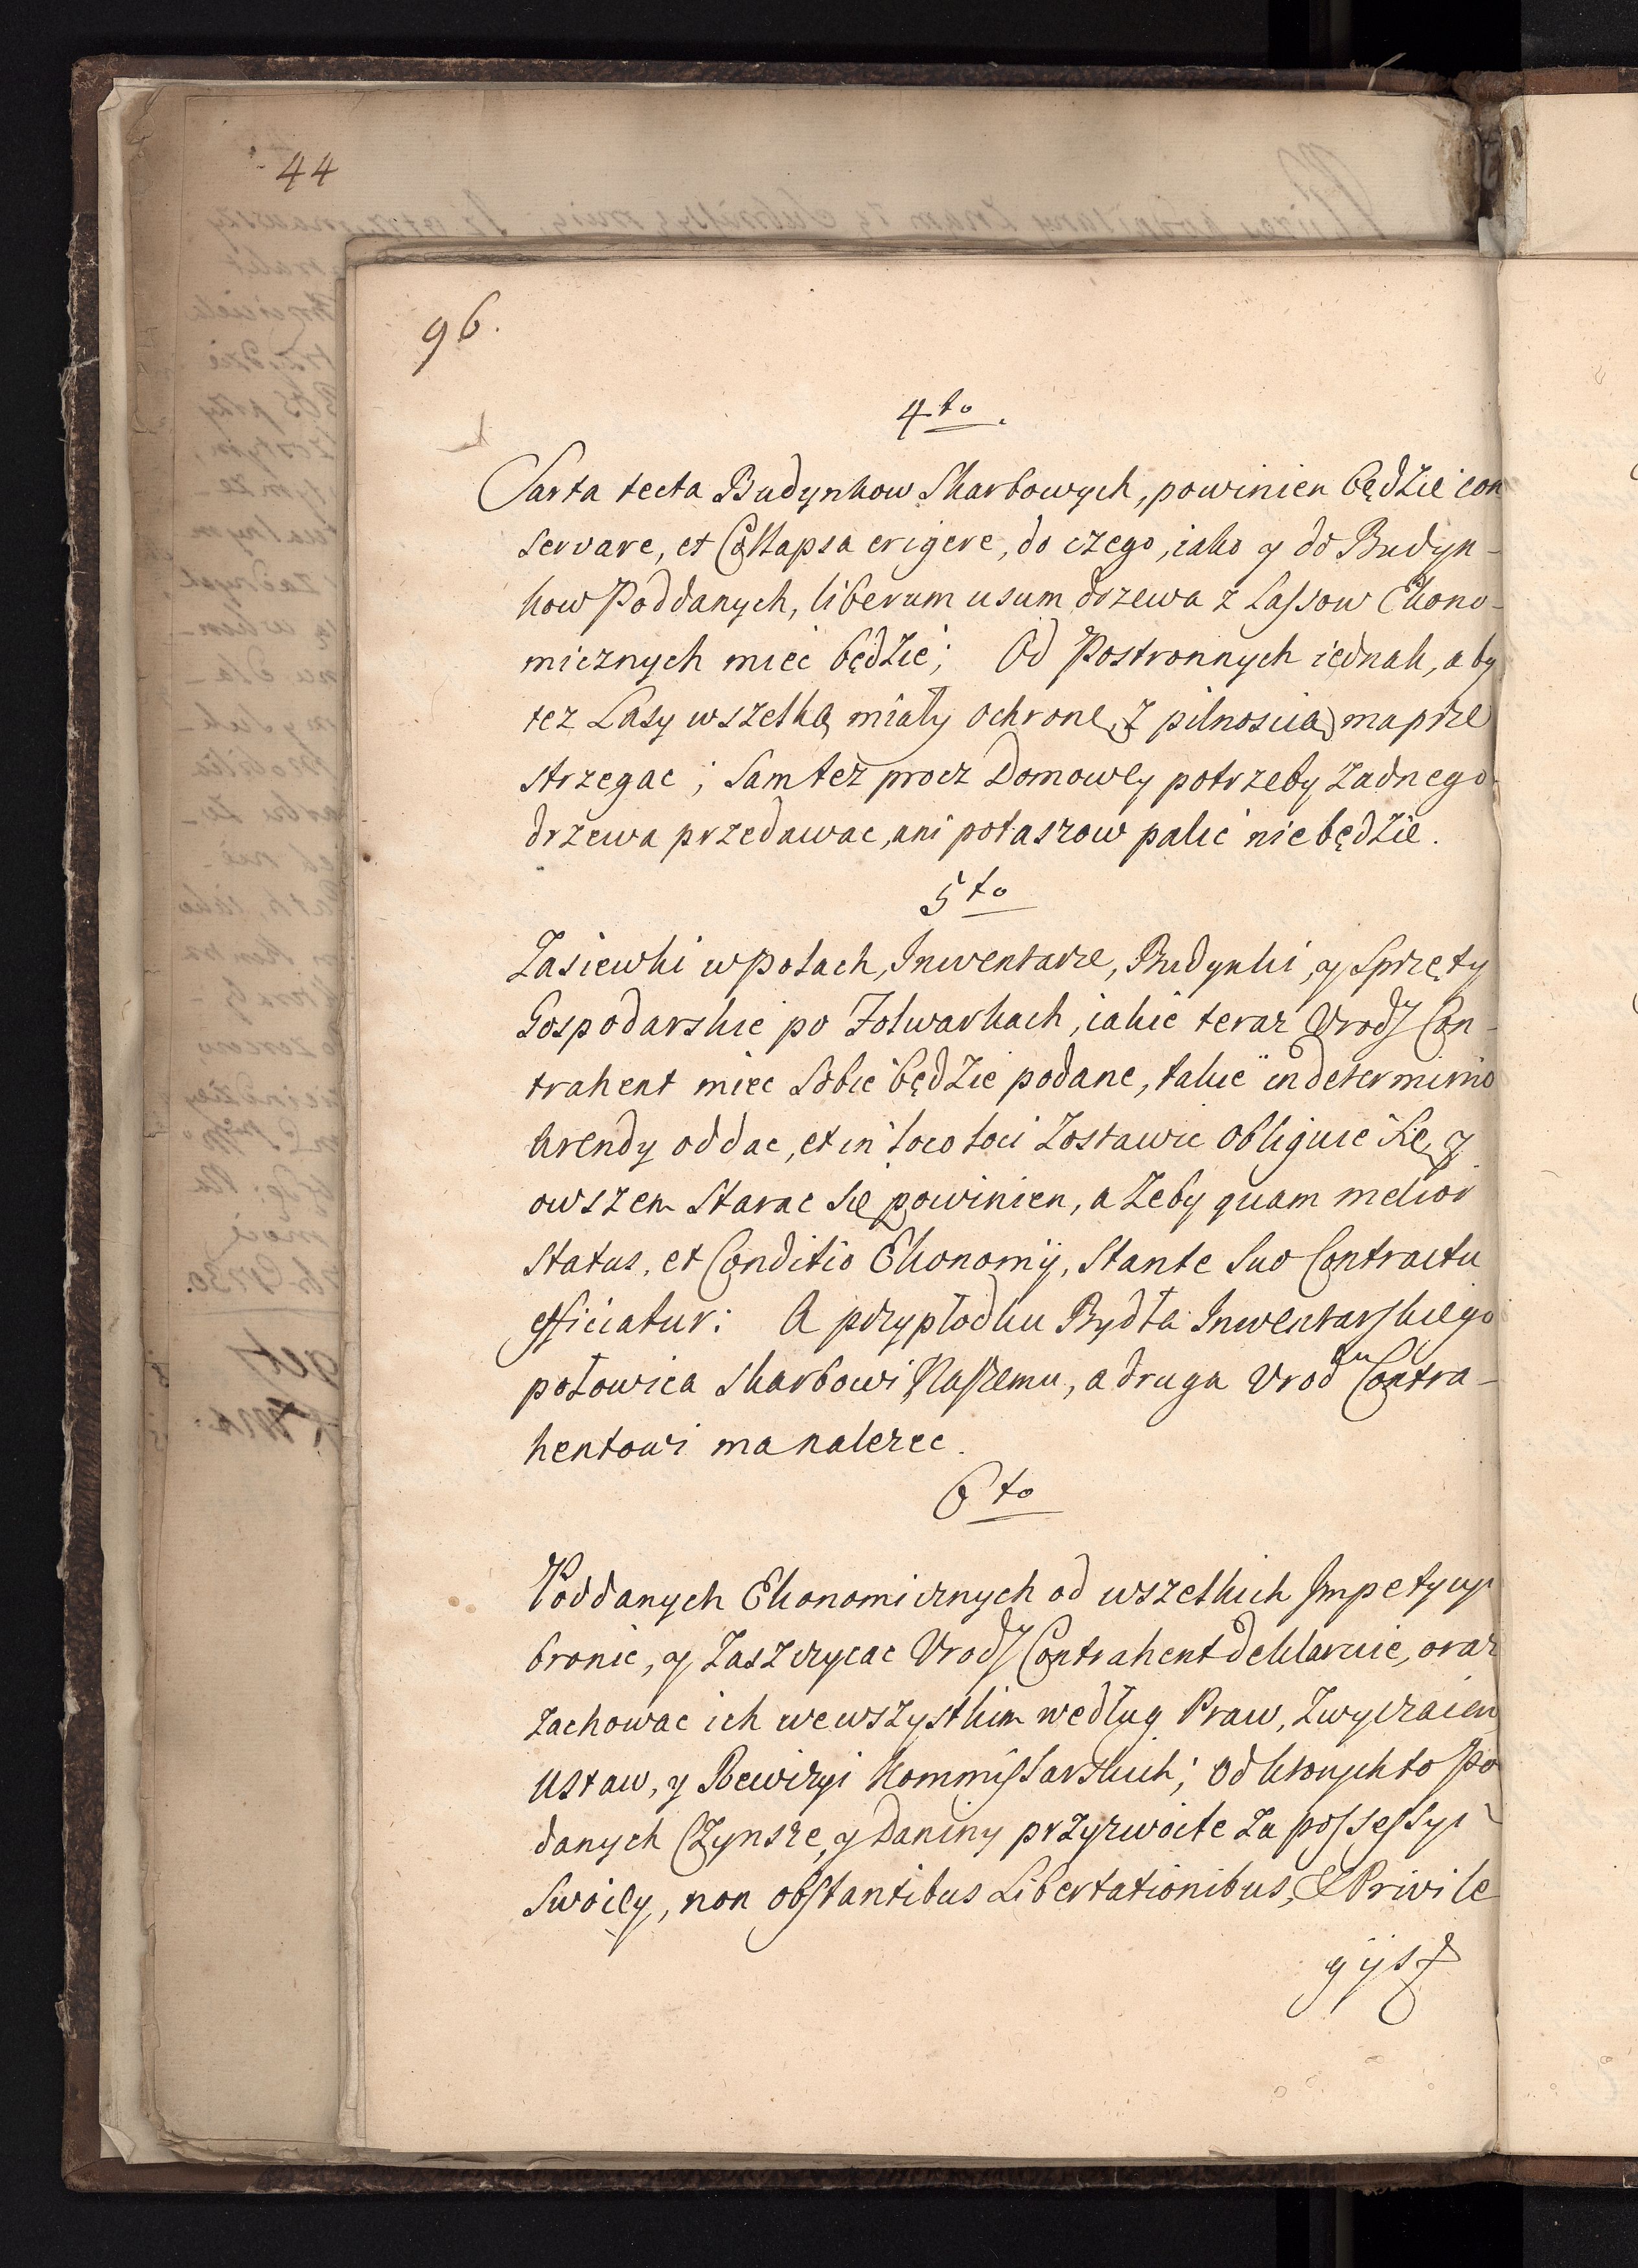 44
96.
4to
Sarta tecta Budynkow Skarbowych, powinien będzie con
servare, et Collapsa erigere, do czego, iako y do Budyn-
kow Poddanych, liberum usum drzewa z Lassow Ekono-
micznych miec będzie; Od Postronnych iednak, aby
tez Lasy wszelką miały ochronę, z pilnoscią ma prze
strzegac; Sam tez procz Domowey potrzeby zadnego
drzewa przedawac, ani potaszow palic nie będzie.
5to
Zasiewki w Polach, Inwentarze, Budynki, y Sprzęty
Gospodarskie po Folwarkach, iakie teraz Urodz Con-
trahent miec Sobie będzie podane, takie in determino
Arendy oddac, et in loco loci zostawic obliguie się, y
owszem Starac się powinien, a zeby quam melior
Status, et Conditio Ekonomij, Stante Suo Contractu
efficiatur: A przypłodku Bydła Inwentarskiego
połowica Skarbowi Naszemu, a druga Urodmu Contra-
hentowi ma nalezec.
6to
Poddanych Ekonomicznych od wszelkich Impetycyi
bronic, y Zaszczycac Urodz Contrahent deklaruie, oraz
zachowac ich we wszystkim według Praw, Zwyczaiow
Ustaw, y Rewizyi Kommissarskich; Od ktorych to Po
danych Czynsze, y Daniny przyzwoite za possessyi
Swoiey, non obstantibus Libertationibus, & Privile
gijs